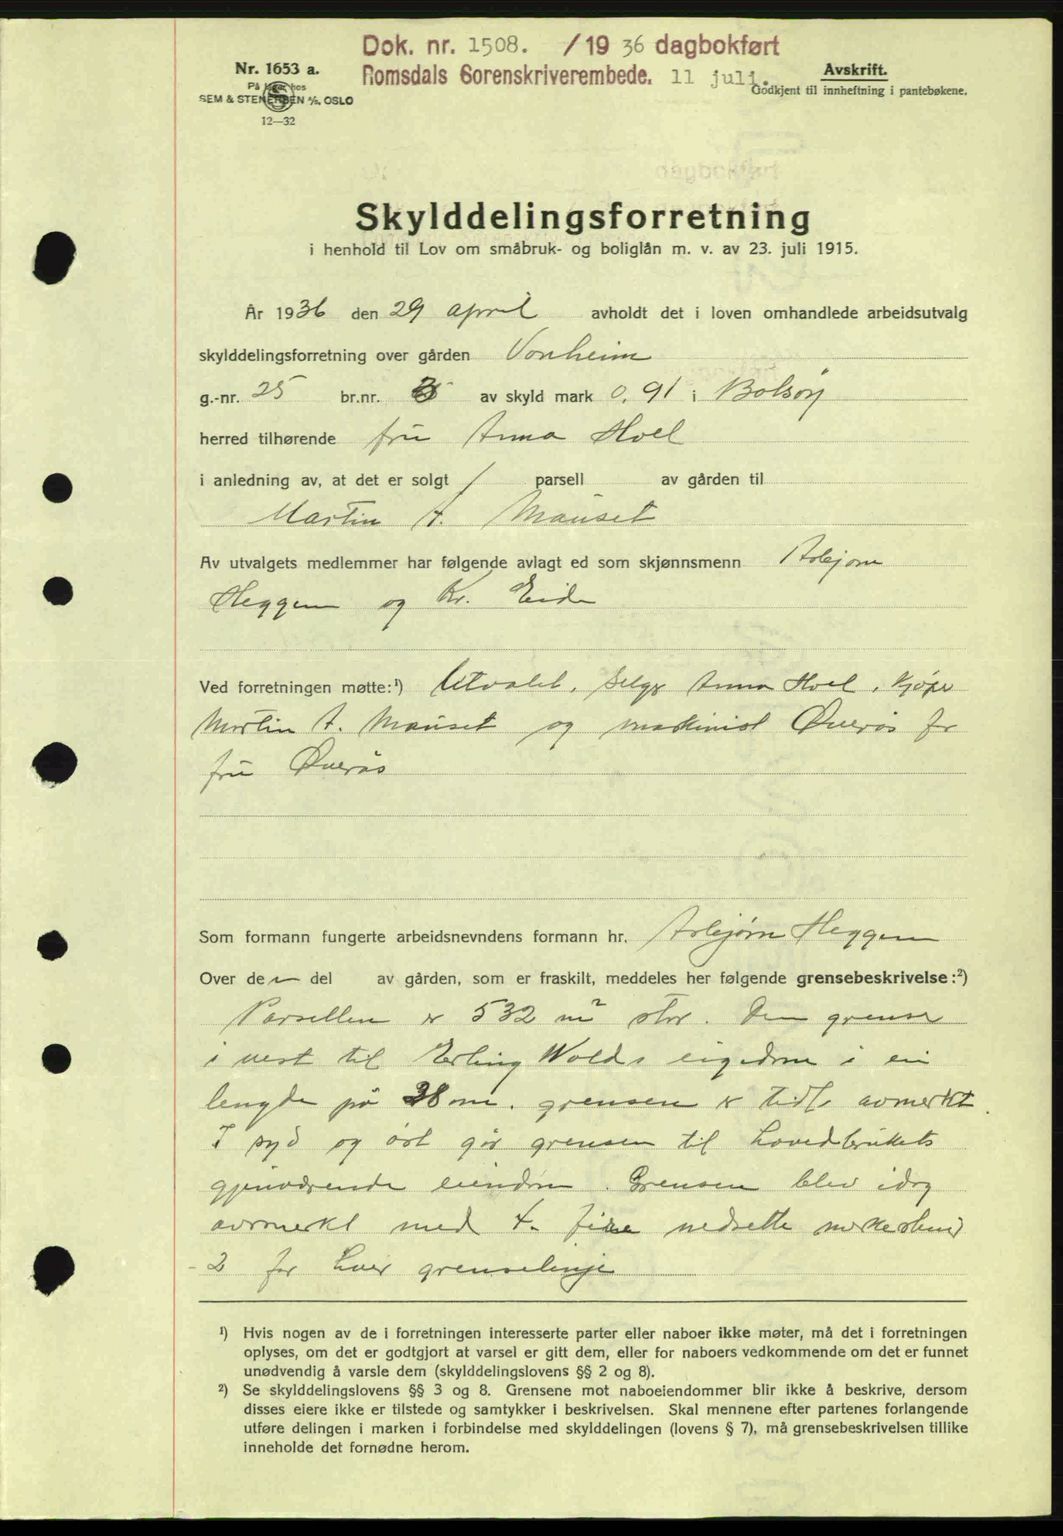 Dok. nr. 1508. /19 36 dagbokført
Romsdals Sorenskriverembede. 11 juli.
Nr. 1653 a.
På lager hos
SEM & STENERSEN A/S, OSLO
12—32
Avskrift.
Godkjent til innheftning i pantebøkene.
Skylddelingsforretning
i henhold til Lov om småbruk- og boliglån m. v. av 23. juli 1915.
År 1936 den 29 april avholdt det i loven omhandlede arbeidsutvalg
skylddelingsforretning over gården Vonheim
g.-nr. 25 br.nr. av skyld mark 0,91 i Bolsøy
herred tilhørende fru Anna Hoel
i anledning av, at det er solgt 1 parsell av gården til
Martin A. Mauset
Av utvalgets medlemmer har følgende avlagt ed som skjønnsmenn Asbjørn
Heggem og Kr. Eide
Ved forretningen møtte:¹) Utvalet, Selger Anna Hoel, kjøper
Martin A. Mauset og maskinist Øverås for
fru Øverås
Som formann fungerte arbeidsnevndens formann hr. Asbjørn Heggem
Over den del av gården, som er fraskilt, meddeles her følgende grensebeskrivelse:²)
Parsellen er 532 m² stor. Den grenser
i vest til Erling Wolds eigedom i ei
lengde på 38 m. grensen er tidl. avmerkt.
I syd og øst går grensen til hovedbrukets
gjenværende eiendom. Grensen blev idag
avmerkt med 4 - fire nedsette merkesteiner
- 2 for hver grenselinje
¹) Hvis nogen av de i forretningen interesserte parter eller naboer ikke møter, må det i forretningen
oplyses, om det er godtgjort at varsel er gitt dem, eller for naboers vedkommende om det er funnet
unødvendig å varsle dem (skylddelingslovens §§ 2 og 8).
²) Se skylddelingslovens §§ 3 og 8. Grensene mot naboeiendommer blir ikke å beskrive, dersom
disses eiere ikke er tilstede og samtykker i beskrivelsen. Skal mennene efter partenes forlangende
utføre delingen i marken i forbindelse med skylddelingen (lovens § 7), må grensebeskrivelsen tillike
inneholde det fornødne herom.